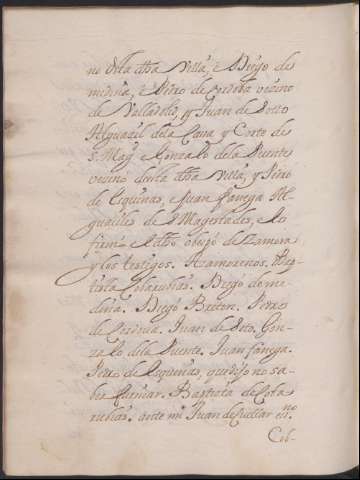 no dela dha Villa, e Diego de
medina, e Pedro de Cordoba vezino
de Valladolid, y Juan de Soto
Alguazil dela Casa y Corte de
S. Mag. e Gonzalo dela Puente
vezino desta dha Villa, y Pedro
de Esquinas, e Juan Fanega Al
guaciles de S Magestades, e lo
firmò el dho obispo de Zamora
y los testigos. A. zamorensis. Bap-
tista Cobarubias. Diego de me-
dina. Diego Breton. Pedro
de Cordova. Juan de Soto. Gon-
zalo dela Puente. Juan fanega.
Pero de Esquinas, que dijo no sa-
ber firmar. Baptista de Coba
rubias. ante mi Juan de Cuellar
Cob-